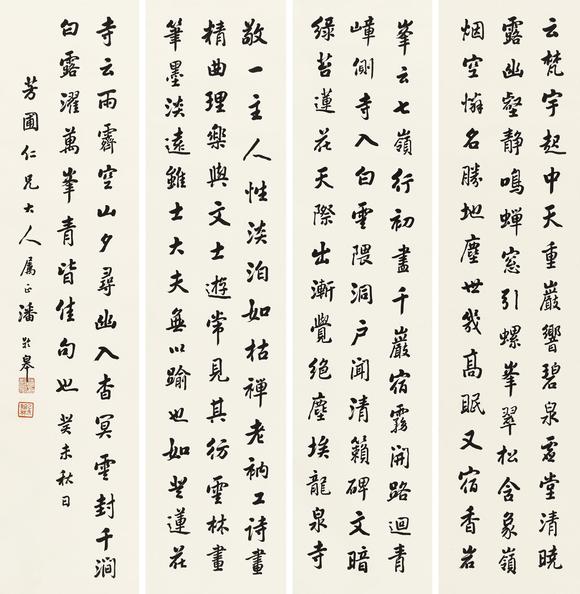 云梵宇起中天重巖響碧泉虚堂清曉
露幽壑静鳴蝉窓引螺峯翠松含象嶺
烟空憐名勝地塵世幾高眠又宿香岩
峯云七嶺行初盡千巖宿霧開路迴青
嶂側寺入白雲隈洞户聞清籟碑文暗
緑苔蓮花天際出漸覺絶塵埃龍泉寺
敬一主人性淡泊如枯禅老衲工诗畫
精曲理樂與文士遊常見其彷雲林畫
筆墨淡遠雖士大夫無以踰也如登蓮花
寺云雨霽空山夕尋幽入杳冥雲封千澗
白露濯萬峯青皆佳句也癸未秋日
芳圃仁兄大人属正潘齡皋